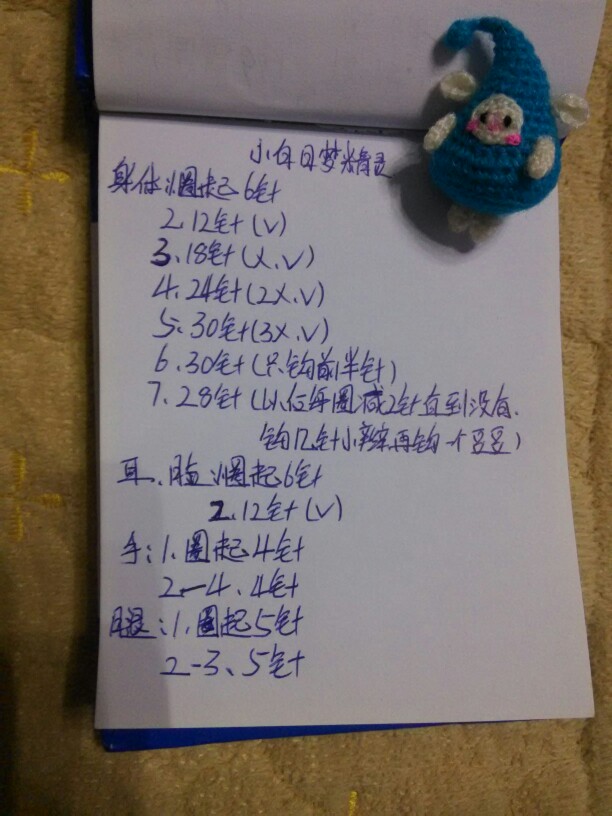 小白日梦精灵
身体:1.圈起6针
2.12针(V)
3.18针(X.V)
4.24针(2X.V)
5.30针(3X.V)
6.30针(只钩前半针)
7.28针(以后每圈减2针直到没有.
钩几针小辫再钩一个豆豆)
耳、脸:1.圈起6针
2.12针(V)
手:1.圈起4针
2-4、4针
腿:1.圈起5针
2-3、5针